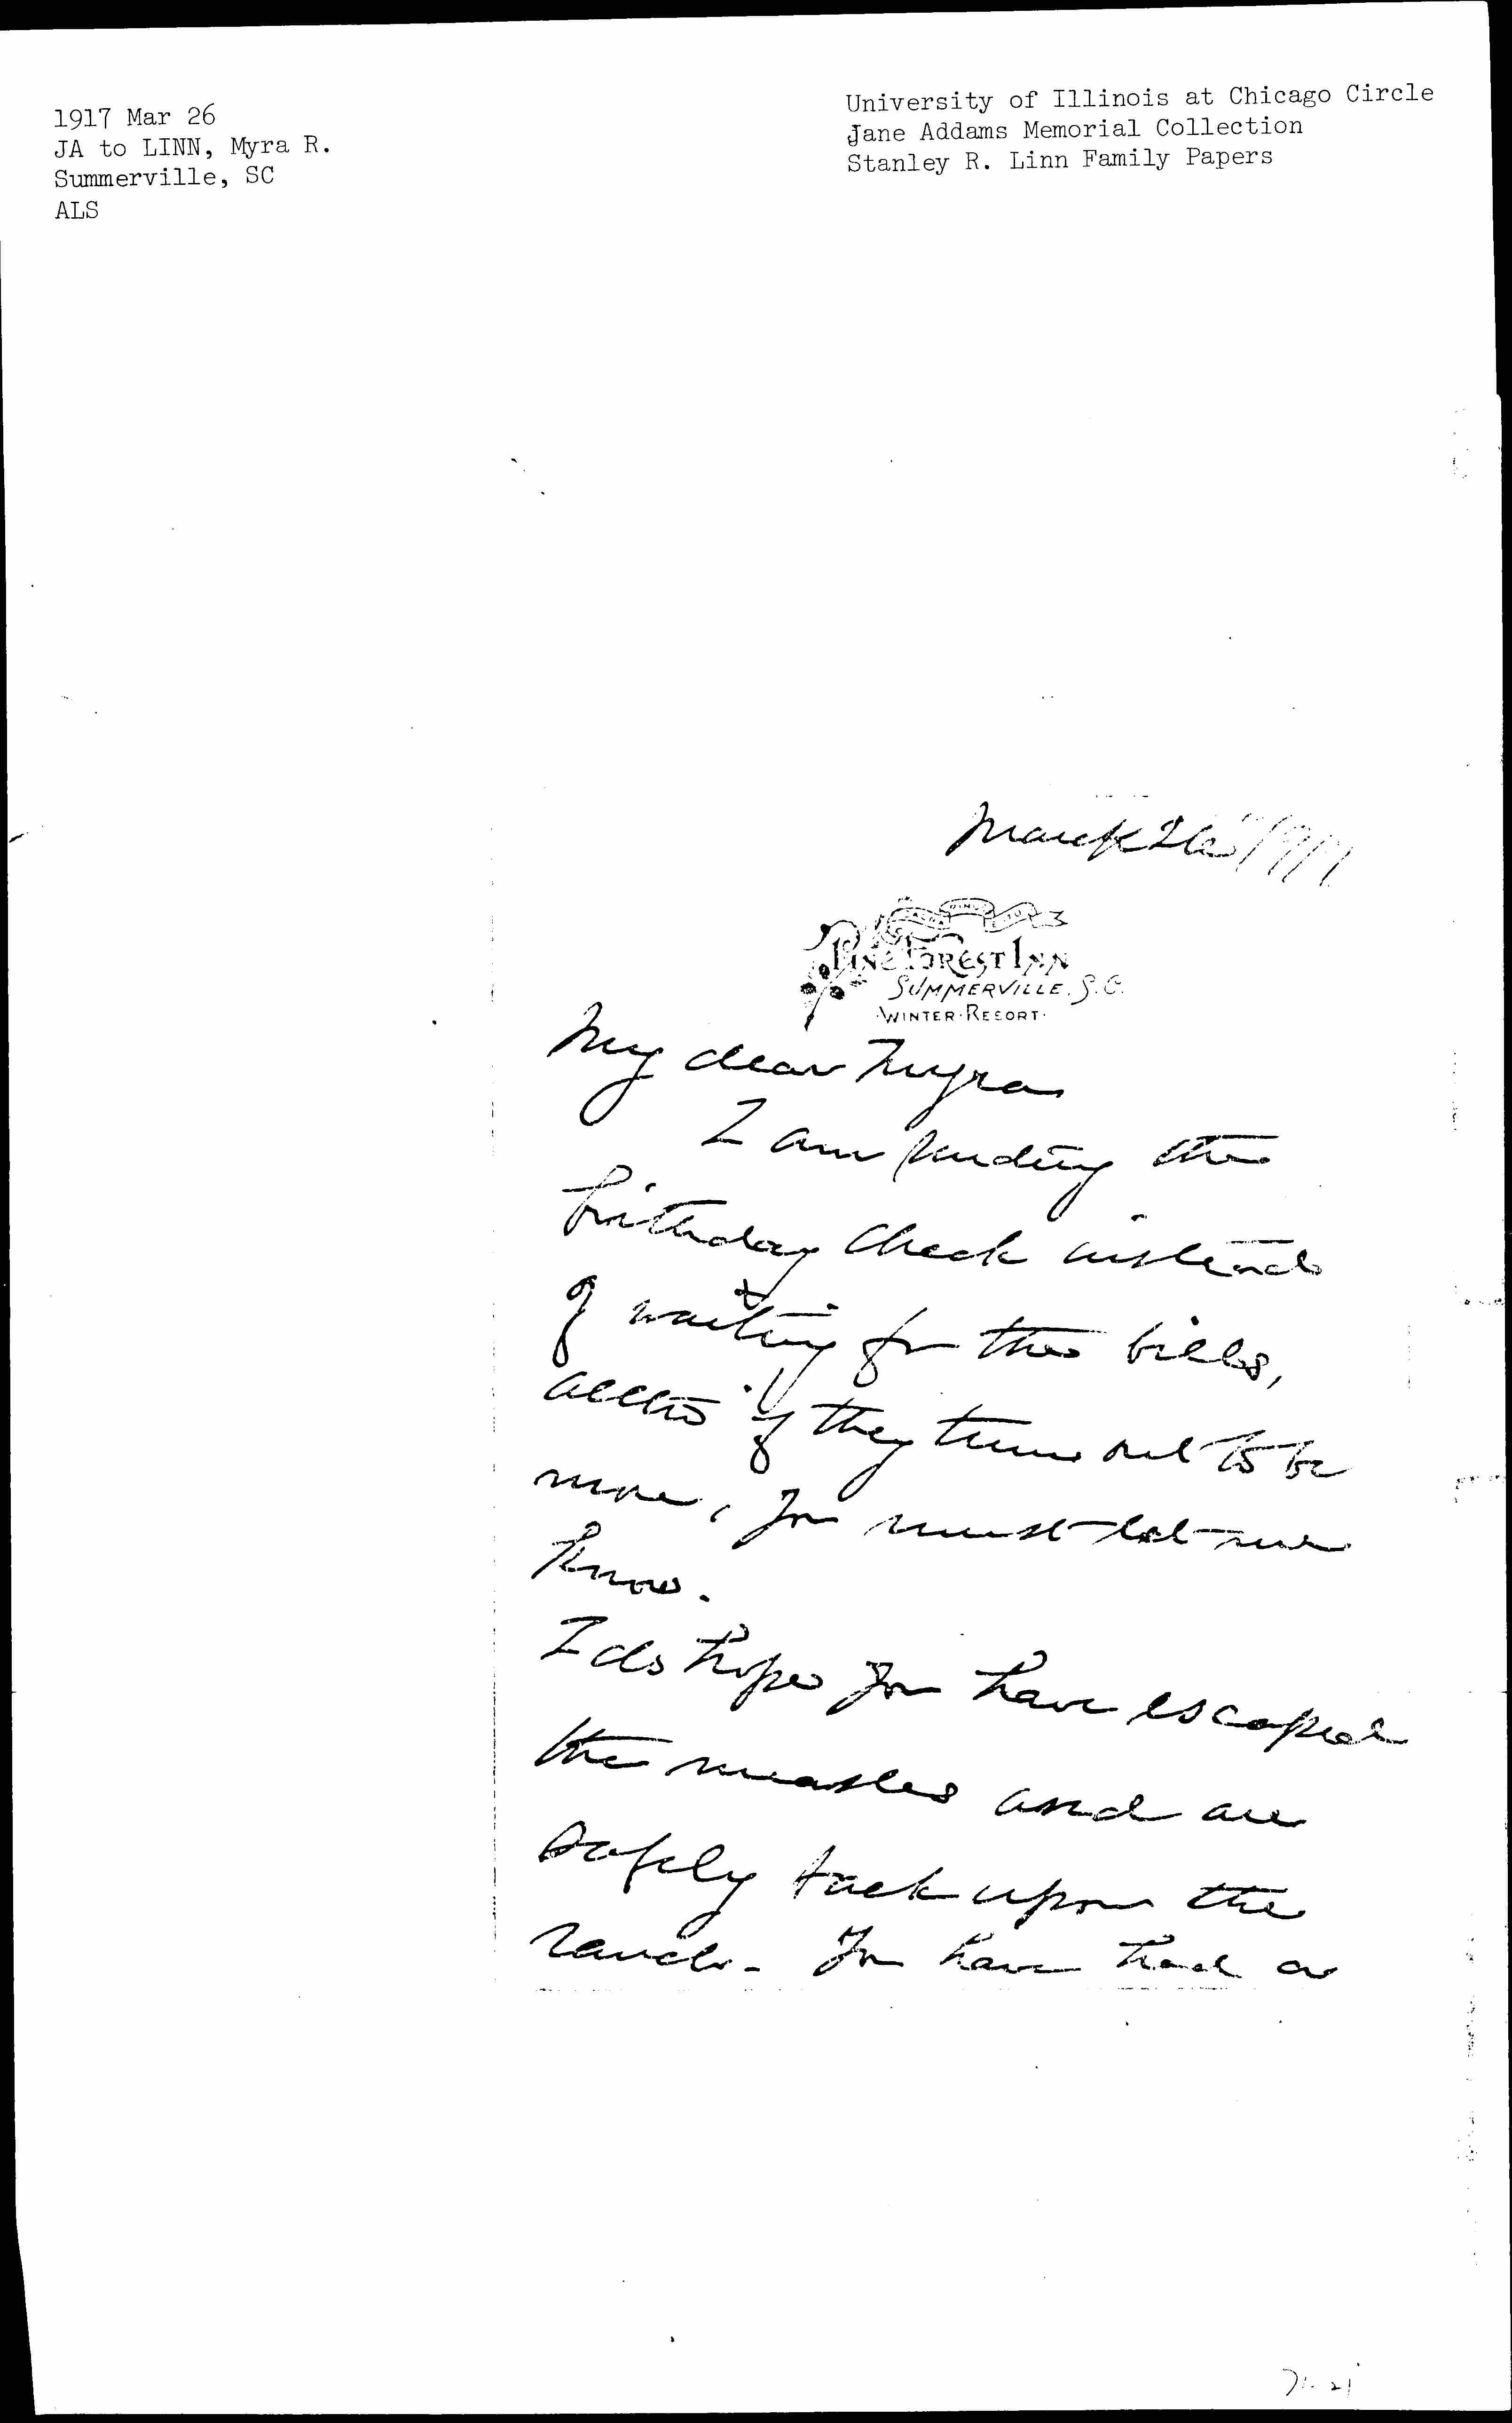 1917 Mar 26
JA to LINN, Myra R.
Summerville, SC
ALS
University of Illinois at Chicago Circle
Jane Addams Memorial Collection
Stanley R. Linn Family Papers
March 26" 1917
PINE FOREST INN
SUMMERVILLE, S.C.
WINTER RESORT
My dear Myra
I am sending the
birthday check instead
of waiting for the bills,
altho' if they turn out to be
more, you must let me
know.
I do hope you have escaped
the measles and are
safely back upon the
ranch. You have had a